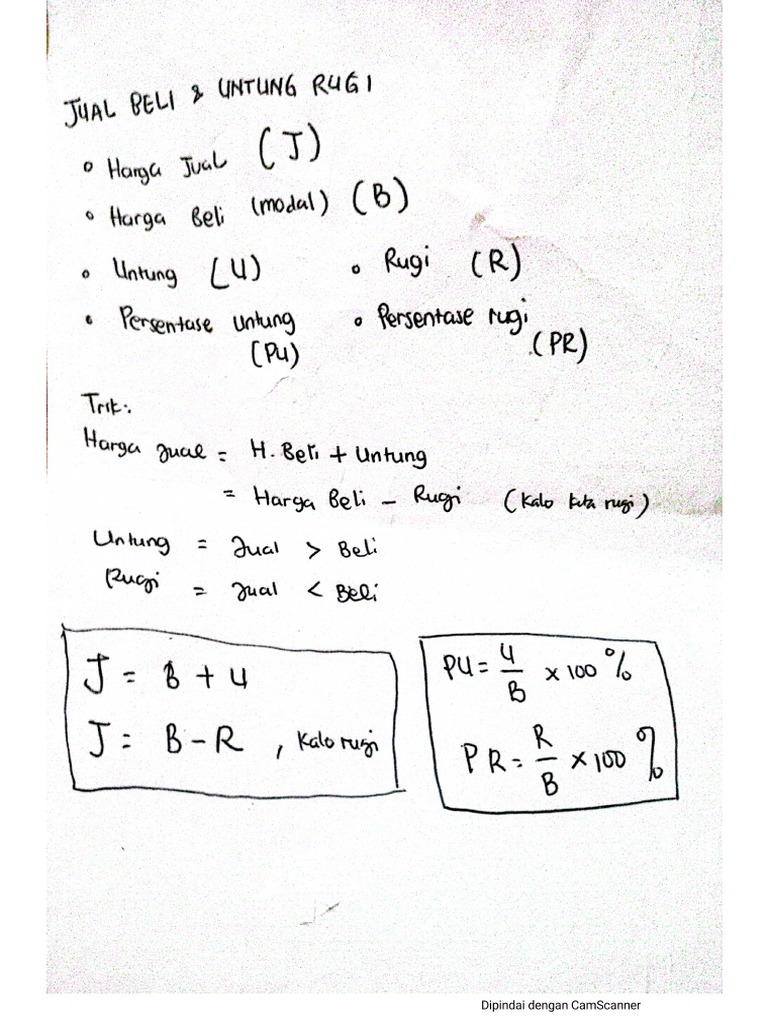 JUAL BELI & UNTUNG RUGI
• Harga Jual (J)
• Harga Beli (modal) (B)
• Untung (U) • Rugi (R)
• Persentase untung (PU) • Persentase rugi (PR)
Trik:
Harga Jual = H. Beli + Untung
= Harga Beli - Rugi (Kalo kita rugi)
Untung = Jual > Beli
Rugi = Jual < Beli
J = B + U
J = B - R, Kalo rugi
PU = U/B x 100 %
PR = R/B x 100 %
Dipindai dengan CamScanner